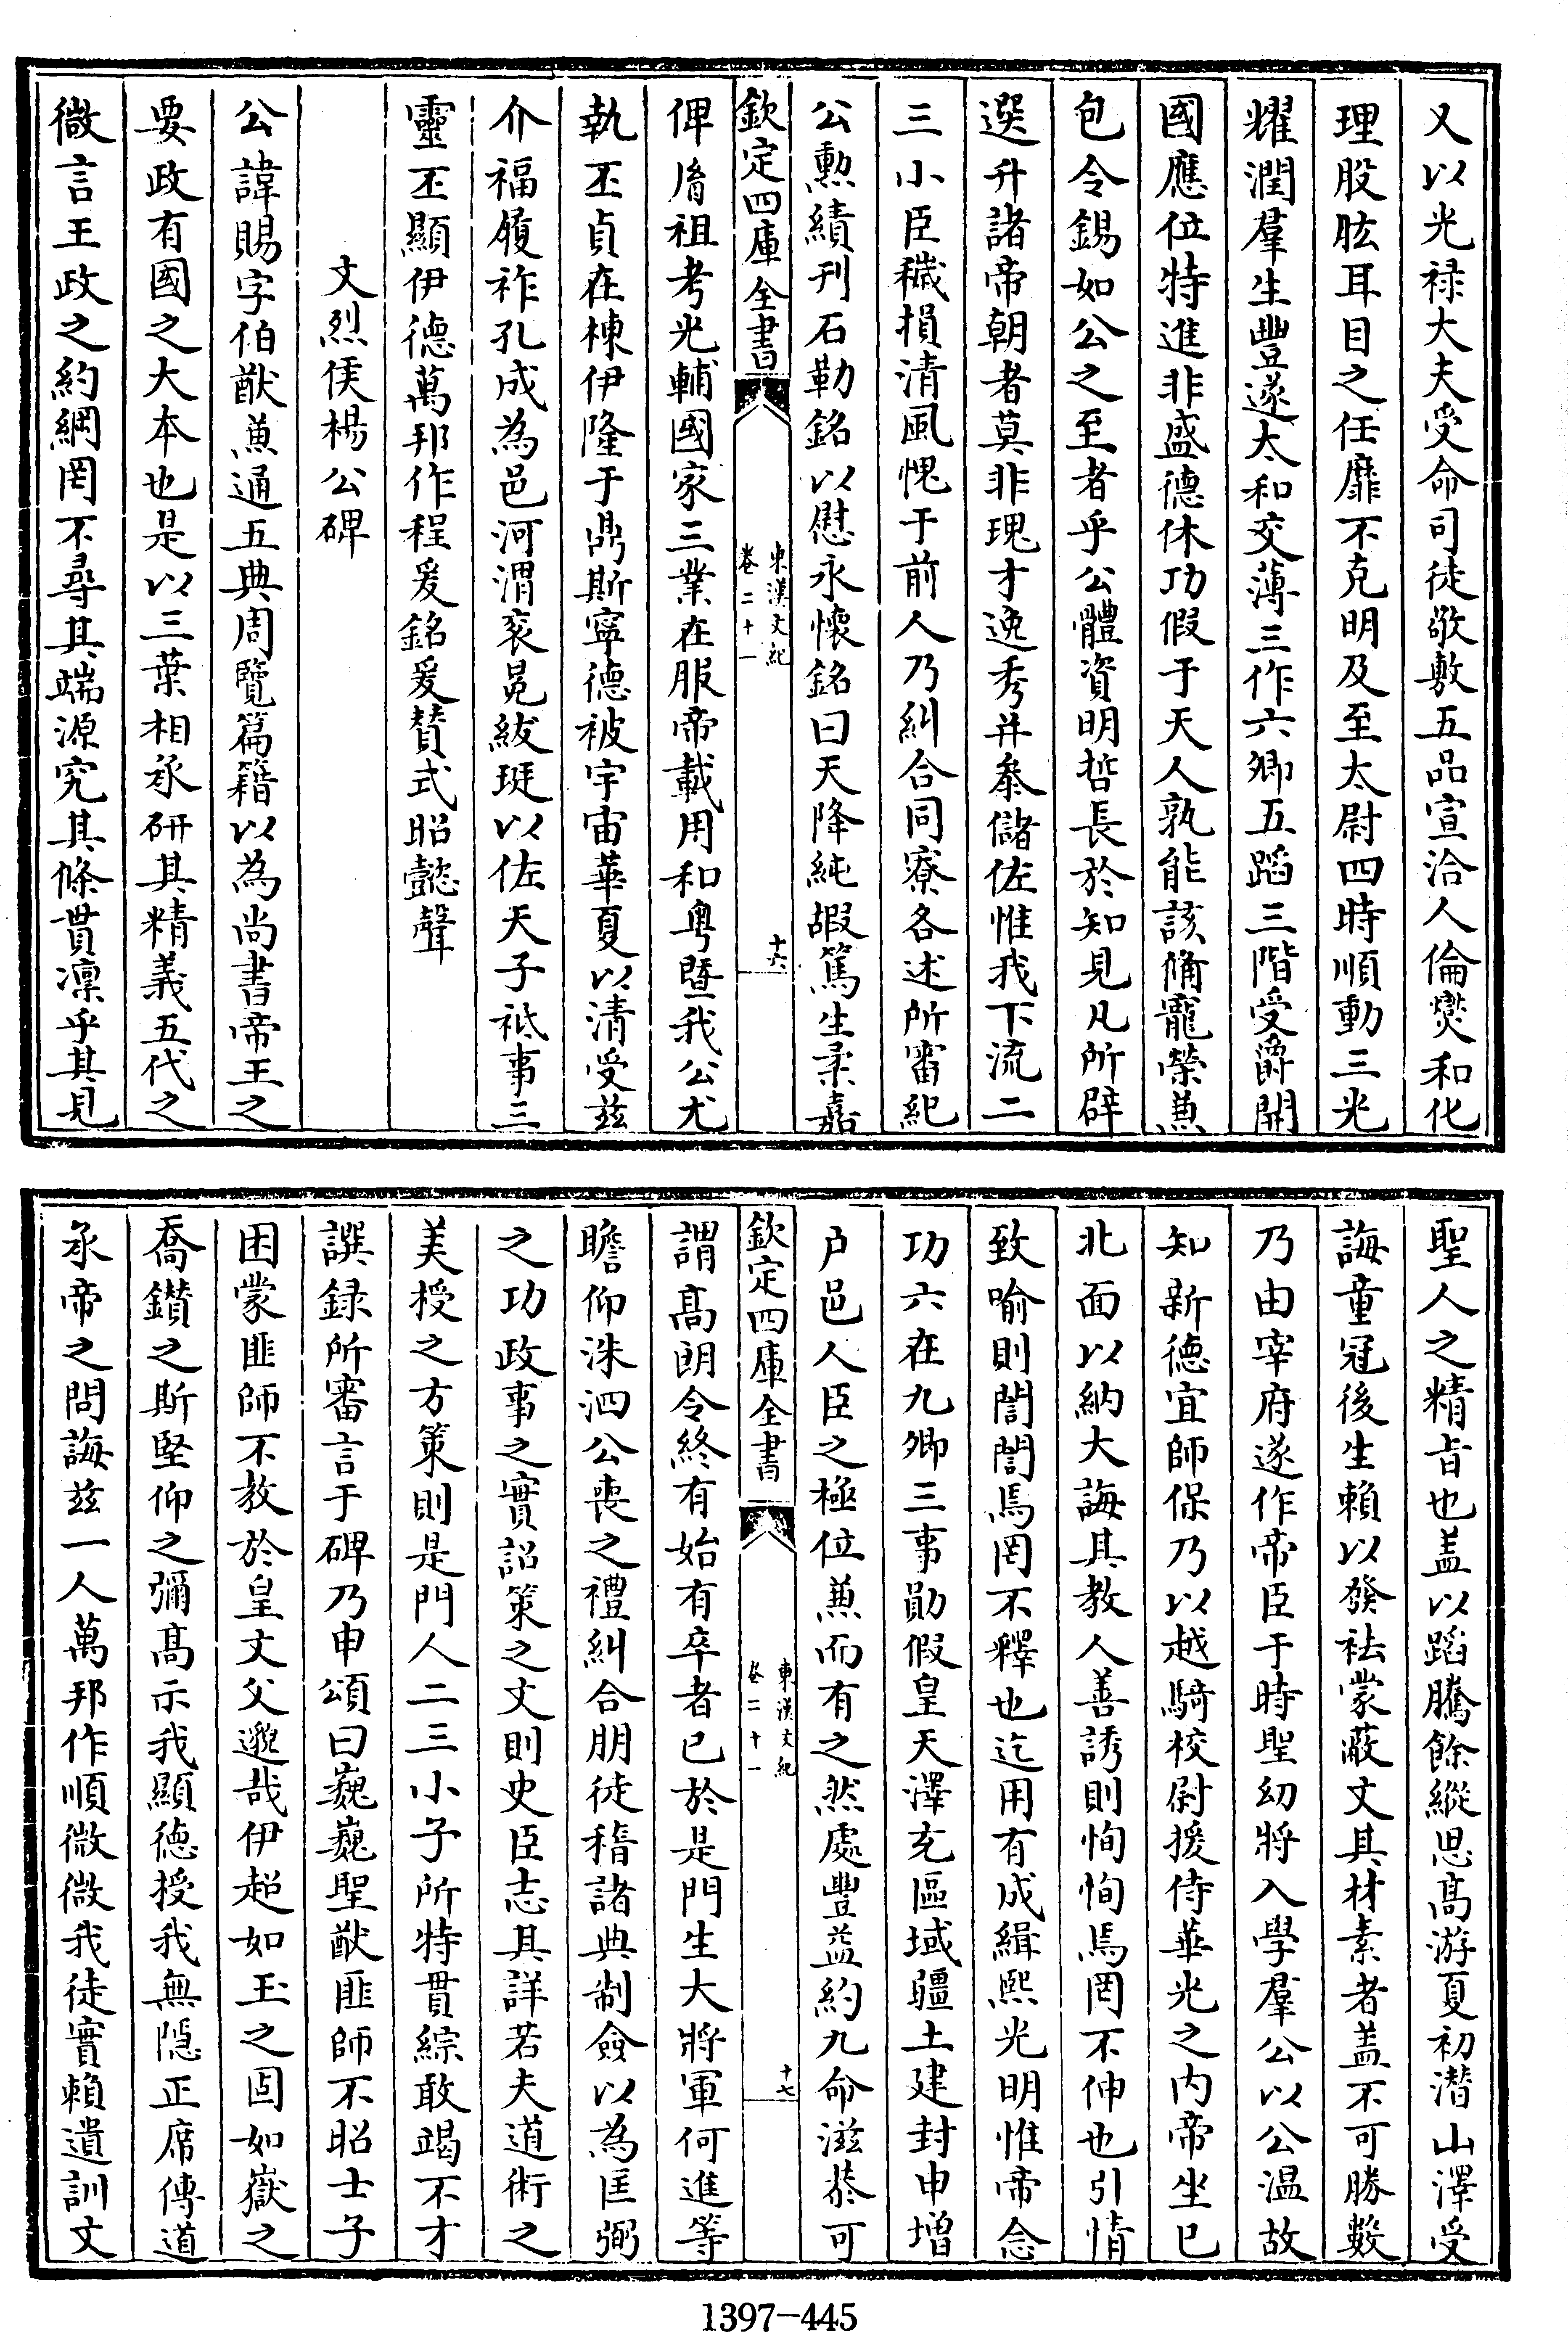 又以光祿大夫受命司徒敬敷五品宣洽人倫燮和化
理股肱耳目之任靡不克明及至太尉四時順動三光
耀潤羣生豐遂太和交薄三作六卿五蹈三階受爵開
國應位特進非盛德休功假于天人孰能該備寵榮兼
包令錫如公之至者乎公體資明哲長於知見凡所辟
選升諸帝朝者莫非瑰才逸秀并參儲佐惟我下流二
三小臣穢損清風愧于前人乃糾合同寮各述所審紀
公勲績刊石勒銘以慰永懷銘曰天降純嘏篤生柔嘉
欽定四庫全書
東漢文紀
卷二十一
十六
俾胥祖考光輔國家三業在服帝載用和粵暨我公尤
執丕貞在棟伊隆于鼎斯寧德被宇宙華夏以清受兹
介福履祚孔成為邑河渭衮冕紱珽以佐天子祗事三
靈丕顯伊德萬邦作程爰銘爰贊式昭懿聲
文烈侯楊公碑
公諱賜字伯猷兼通五典周覽篇籍以為尚書帝王之
要政有國之大本也是以三葉相承研其精義五代之
微言王政之約綱罔不尋其端源究其條貫凜乎其見
聖人之精旨也盖以蹈騰餘縱思髙游夏初潛山澤受
誨童冠後生賴以發祛蒙蔽文其材素者盖不可勝數
乃由宰府遂作帝臣于時聖幼將入學羣公以公温故
知新德宜師保乃以越騎校尉援侍華光之内帝坐已
北面以納大誨其教人善誘則恂恂焉罔不伸也引情
致喻則誾誾焉罔不釋也迄用有成緝熙光明惟帝念
功六在九卿三事勛假皇天澤充區域疆土建封申增
户邑人臣之極位兼而有之然處豐益約九命滋恭可
欽定四庫全書
東漢文紀
卷二十一
十七
謂髙朗令終有始有卒者已於是門生大將軍何進等
瞻仰洙泗公喪之禮糾合朋徒稽諸典制僉以為匡弼
之功政事之實詔策之文則史臣志其詳若夫道術之
美授之方策則是門人二三小子所特貫綜敢竭不才
譔録所審言于碑乃申頌曰巍巍聖猷匪師不昭士子
困蒙匪師不教於皇文父邈哉伊超如玉之固如嶽之
喬鑚之斯堅仰之彌髙示我顯德授我無隱正席傳道
承帝之問誨兹一人萬邦作順微微我徒實賴遺訓文
1397-445